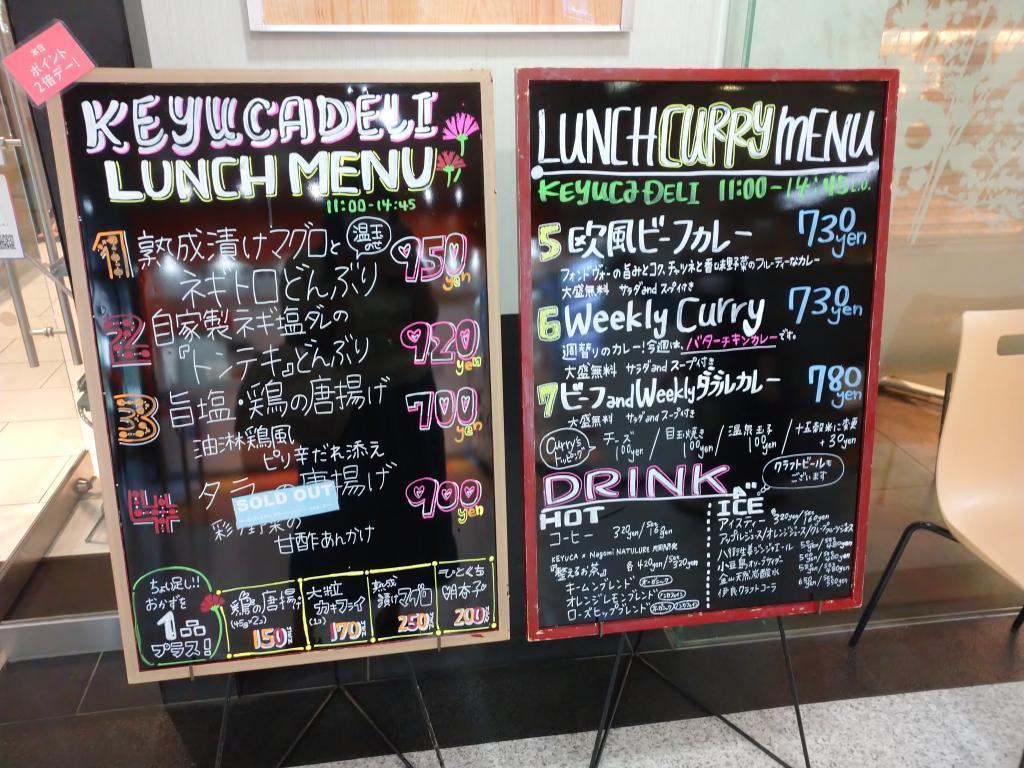 本日
ポイント
2倍デー!
KEYUCADELI
LUNCH MENU
11:00-14:45
1 熟成漬けマグロと 温玉のせ
ネギトロどんぶり 950yen
2 自家製ネギ塩ダレの
『トンテキ』どんぶり 920yen
3 旨塩・鶏の唐揚げ 700yen
油淋鶏風
ピリ辛だれ添え
4 タラの唐揚げ 900yen
SOLD OUT
彩り野菜の
甘酢あんかけ
ちょい足し!!
おかずを
1品
プラス!
鶏の唐揚げ
(45g×2コ)
150
大粒
カキフライ
(1コ)
170
漬けマグロ
250
ひとくち
明太子
200
LUNCH CURRY MENU
KEYUCA DELI 11:00-14:45 L.O.
5 欧風ビーフカレー 730yen
フォンドヴォーの旨みとコク、チャツネと香味野菜のフルーティーなカレー
大盛無料 サラダand スープ付き
6 Weekly Curry 730yen
週替りのカレー!今週は、バターチキンカレーです。
大盛無料 サラダand スープ付き
7 ビーフandWeeklyダブルカレー 780yen
大盛無料 サラダand スープ付き
Curry's トッピング
チーズ 100yen / 目玉焼き 100yen / 温泉玉子 100yen / 十五穀米に変更 +30yen
クラフトビールも
ございます
DRINK
HOT
コーヒー 320yen/
KEYUCA × Nagomi NATULURE
『整えるお茶』 各420yen/
キームンブレンド オーガニック
オレンジレモンブレンド ノンカフェイン
ローズヒップブレンド オーガニック ノンカフェイン
ICE
アイスティー 320yen/
アップルジュース/オレンジジュース/グレープフルーツジュース
八代生姜ジンジャエール
小豆島オリーブサイダー
金山天然炭酸水
伊良クラフトコーラ